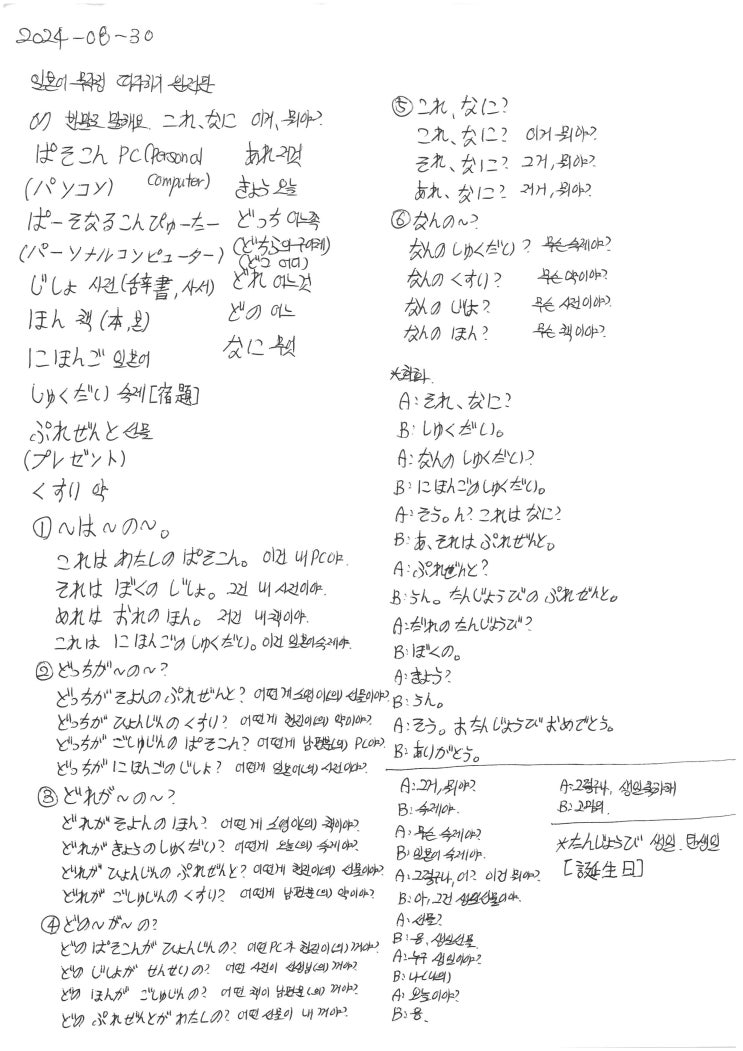 2024-08-30
일본어 무작정 따라하기 완전판
01 반말로 말해요. これ、なに 이거, 뭐야?
ぱそこん PC(Personal Computer)
(パソコン)
ぱーそなるこんぴゅーたー
(パーソナルコンピューター)
じしょ 사전(辞書, 사서)
ほん 책(本,본)
にほんご 일본어
しゅくだい 숙제[宿題]
ぷれぜんと 선물
(プレゼント)
くすり 약
あれ 저것
きょう 오늘
どっち 어느쪽
(どちら의 구어체)
(どこ 어디)
どれ 어느것
どの 어느
なに 무엇
① ~は~の~。
これは わたしの ぱそこん。 이건 내 PC야.
それは ぼくの じしょ。 그건 내 사전이야.
あれは おれの ほん。 저건 내 책이야.
これは にほんごの しゅくだい。 이건 일본어 숙제야.
② どっちが~の~?
どっちが そよんの ぷれぜんと? 어떤게 소영이(의) 선물이야?
どっちが ひょんじんの くすり? 어떤게 현진이(의) 약이야?
どっちが ごしゅじんの ぱそこん? 어떤게 남편분(의) PC야?
どっちが にほんごの じしょ? 어떤게 일본어(의) 사전이야?
③ どれが~の~?
どれが そよんの ほん? 어떤게 소영이(의) 책이야?
どれが きょうの しゅくだい? 어떤게 오늘(의) 숙제야?
どれが ひょんじんの ぷれぜんと? 어떤게 현진이(의) 선물이야?
どれが ごしゅじんの くすり? 어떤게 남편분(의) 약이야?
④ どの~が~の?
どの ぱそこんが ひょんじんの? 어떤 PC가 현진이(의) 꺼야?
どの じしょが せんせいの? 어떤 사전이 선생님(의) 꺼야?
どの ほんが ごしゅじんの? 어떤 책이 남편분(의) 꺼야?
どの ぷれぜんとが わたしの? 어떤 선물이 내 꺼야?
⑤ これ、なに?
これ、なに? 이거 뭐야?
それ、なに? 그거, 뭐야?
あれ、なに? 저거, 뭐야?
⑥ なんの~?
なんの しゅくだい? 무슨 숙제야?
なんの くすり? 무슨 약이야?
なんの じしょ? 무슨 사전이야?
なんの ほん? 무슨 책이야?
*회화
A: それ、なに?
B: しゅくだい。
A: なんの しゅくだい?
B: にほんごの しゅくだい。
A: そう。ん? これは なに?
B: あ、それは ぷれぜんと。
A: ぷれぜんと?
B: うん。たんじょうびの ぷれぜんと。
A: だれの たんじょうび?
B: ぼくの。
A: きょう?
B: うん。
A: そう。おたんじょうび おめでとう。
B: ありがとう。
A: 그거, 뭐야?
B: 숙제야.
A: 무슨 숙제야?
B: 일본어 숙제야.
A: 그렇구나, 어? 이건 뭐야?
B: 아, 그건 생일선물이야.
A: 선물?
B: 응, 생일선물
A: 누구 생일이야?
B: 나(나의)
A: 오늘이야?
B: 응.
A: 그렇구나, 생일축하해
B: 고마워.
*たんじょうび 생일, 탄생일
[誕生日]